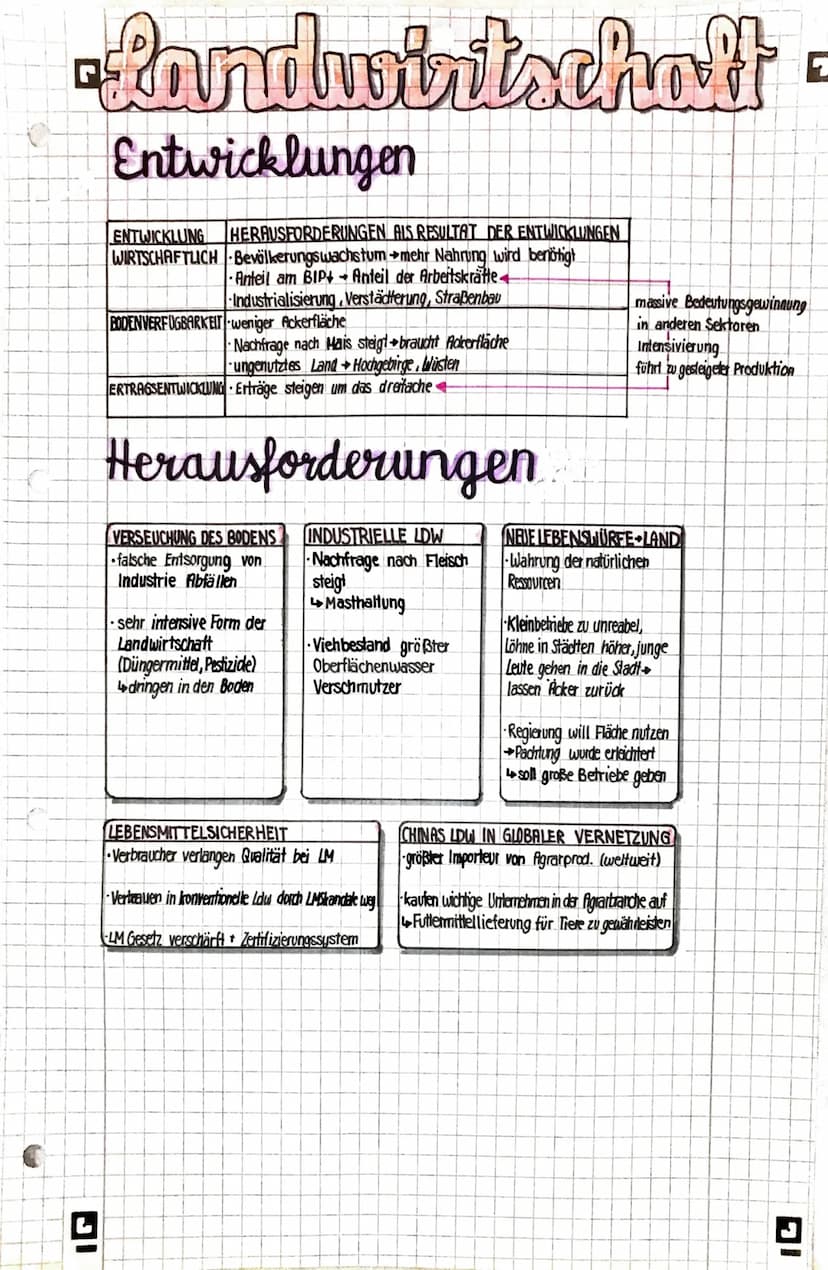 Landwirtschaft
Entwicklungen
ENTWICKLUNG HERAUSFORDERUNGEN ALS RESULTAT DER ENTWICKLUNGEN
WIRTSCHAFTLICH · Bevölkerungswachstum → mehr Nahrung wird benötigt
· Anteil am BIP↓ → Anteil der Arbeitskräfte
· Industrialisierung, Verstädterung, Straßenbau
massive Bedeutungsgewinnung
in anderen Sektoren
BODENVERFÜGBARKEIT · weniger Ackerfläche
· Nachfrage nach Mais steigt → braucht Ackerfläche
· ungenutztes Land → Hochgebirge, Wüsten
Intensivierung
führt zu gesteigeter Produktion
ERTRAGSENTWICKLUNG · Erträge steigen um das dreifache
Herausforderungen
VERSEUCHUNG DES BODENS
· falsche Entsorgung von
Industrie Abfällen
· sehr intensive Form der
Landwirtschaft
(Düngermittel, Pestizide)
↳ dringen in den Boden
INDUSTRIELLE LDW
· Nachfrage nach Fleisch
steigt
↳ Masthaltung
· Viehbestand größter
Oberflächenwasser
Verschmutzer
NEUE LEBENSWÜRFE → LAND
· Wahrung der natürlichen
Ressourcen
· Kleinbetriebe zu unreabel,
Löhne in Städten höher, junge
Leute gehen in die Stadt →
lassen Äcker zurück
· Regierung will Fläche nutzen
→ Pachtung wurde erleichtert
↳ soll große Betriebe geben
LEBENSMITTELSICHERHEIT
· Verbraucher verlangen Qualität bei LM
· Vertrauen in konventionelle Ldw durch LMSkandale weg
· LM Gesetz verschärft + Zertifizierungssystem
CHINAS LDW IN GLOBALER VERNETZUNG
· größter Importeur von Agrarprod. (weltweit)
· kaufen wichtige Unternehmen in der Agrarbranche auf
↳ Futtermittellieferung für Tiere zu gewährleisten